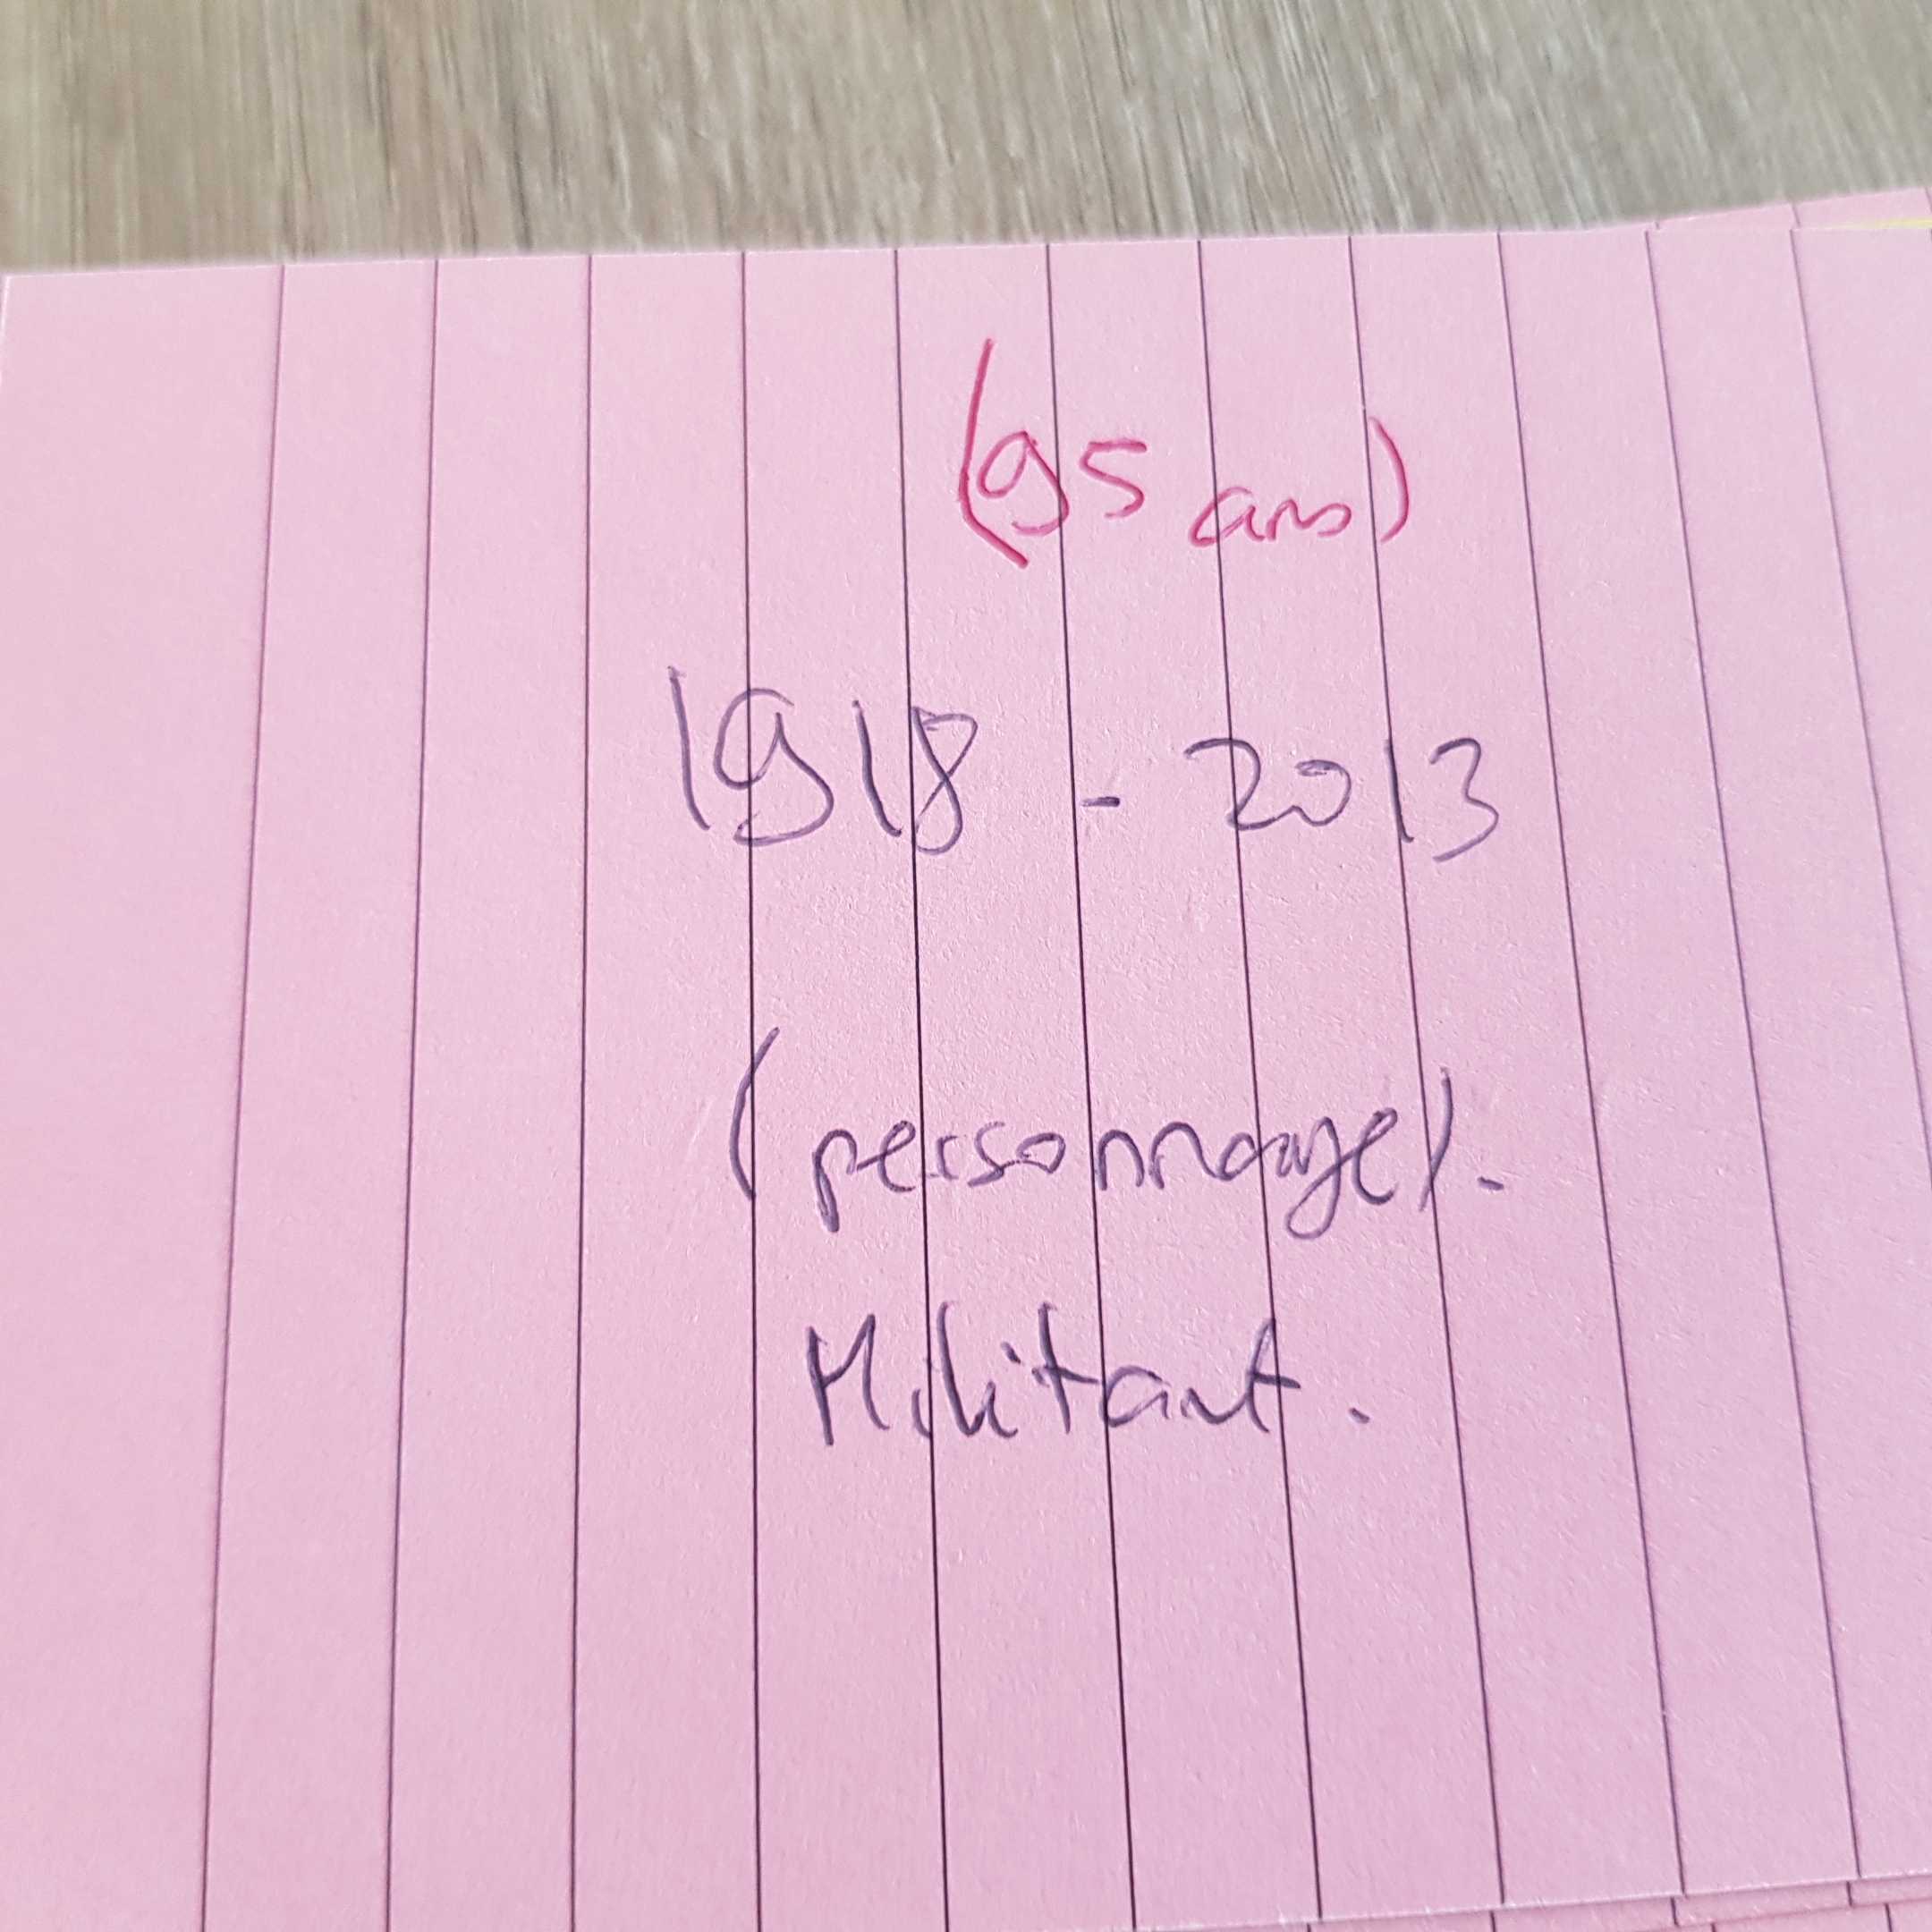 (95 ans)
1918 - 2013
(personnage).
Militant.